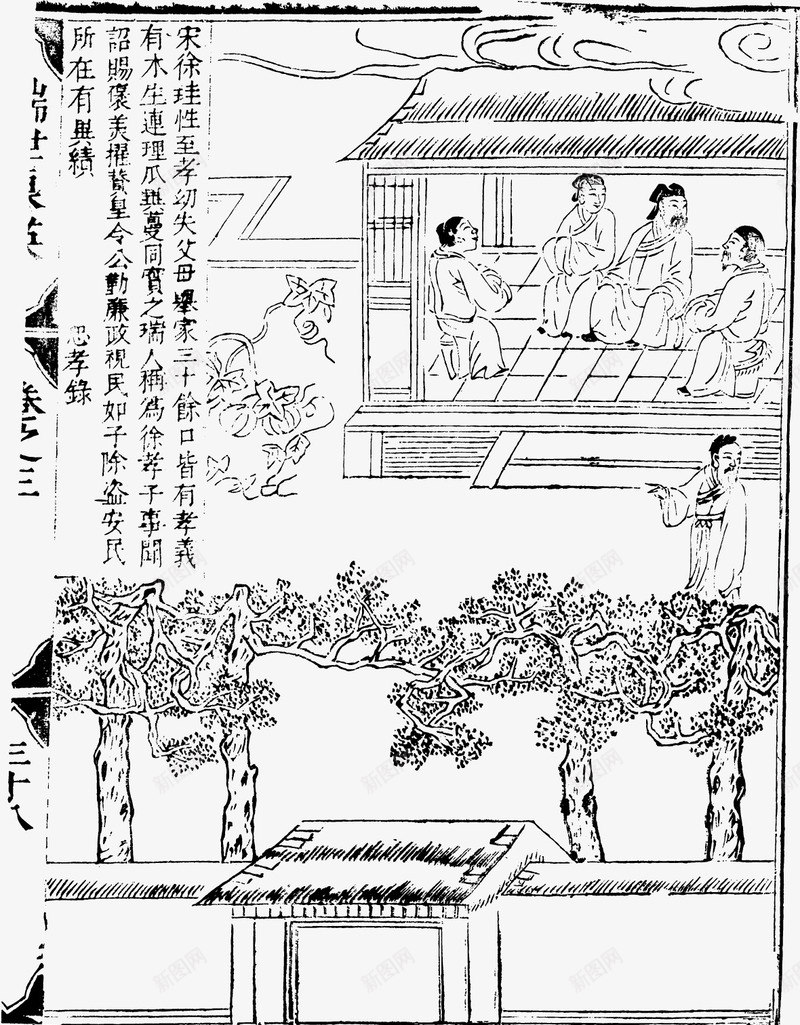 宋徐珪性至孝幼失父母舉家三十餘口皆有孝義
有木生連理瓜異蔓同實之瑞人稱爲徐孝子事聞
詔賜褒美擢賛皇令公勤廉政視民如子除盗安民
所在有異績 忠孝錄
卷之三
三十八